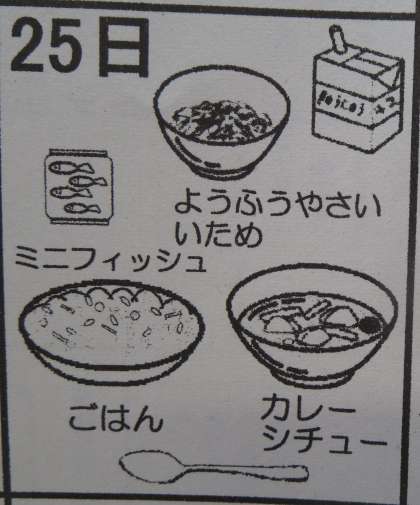 25日
ようふうやさい
いため
ミニフィッシュ
ごはん
カレー
シチュー